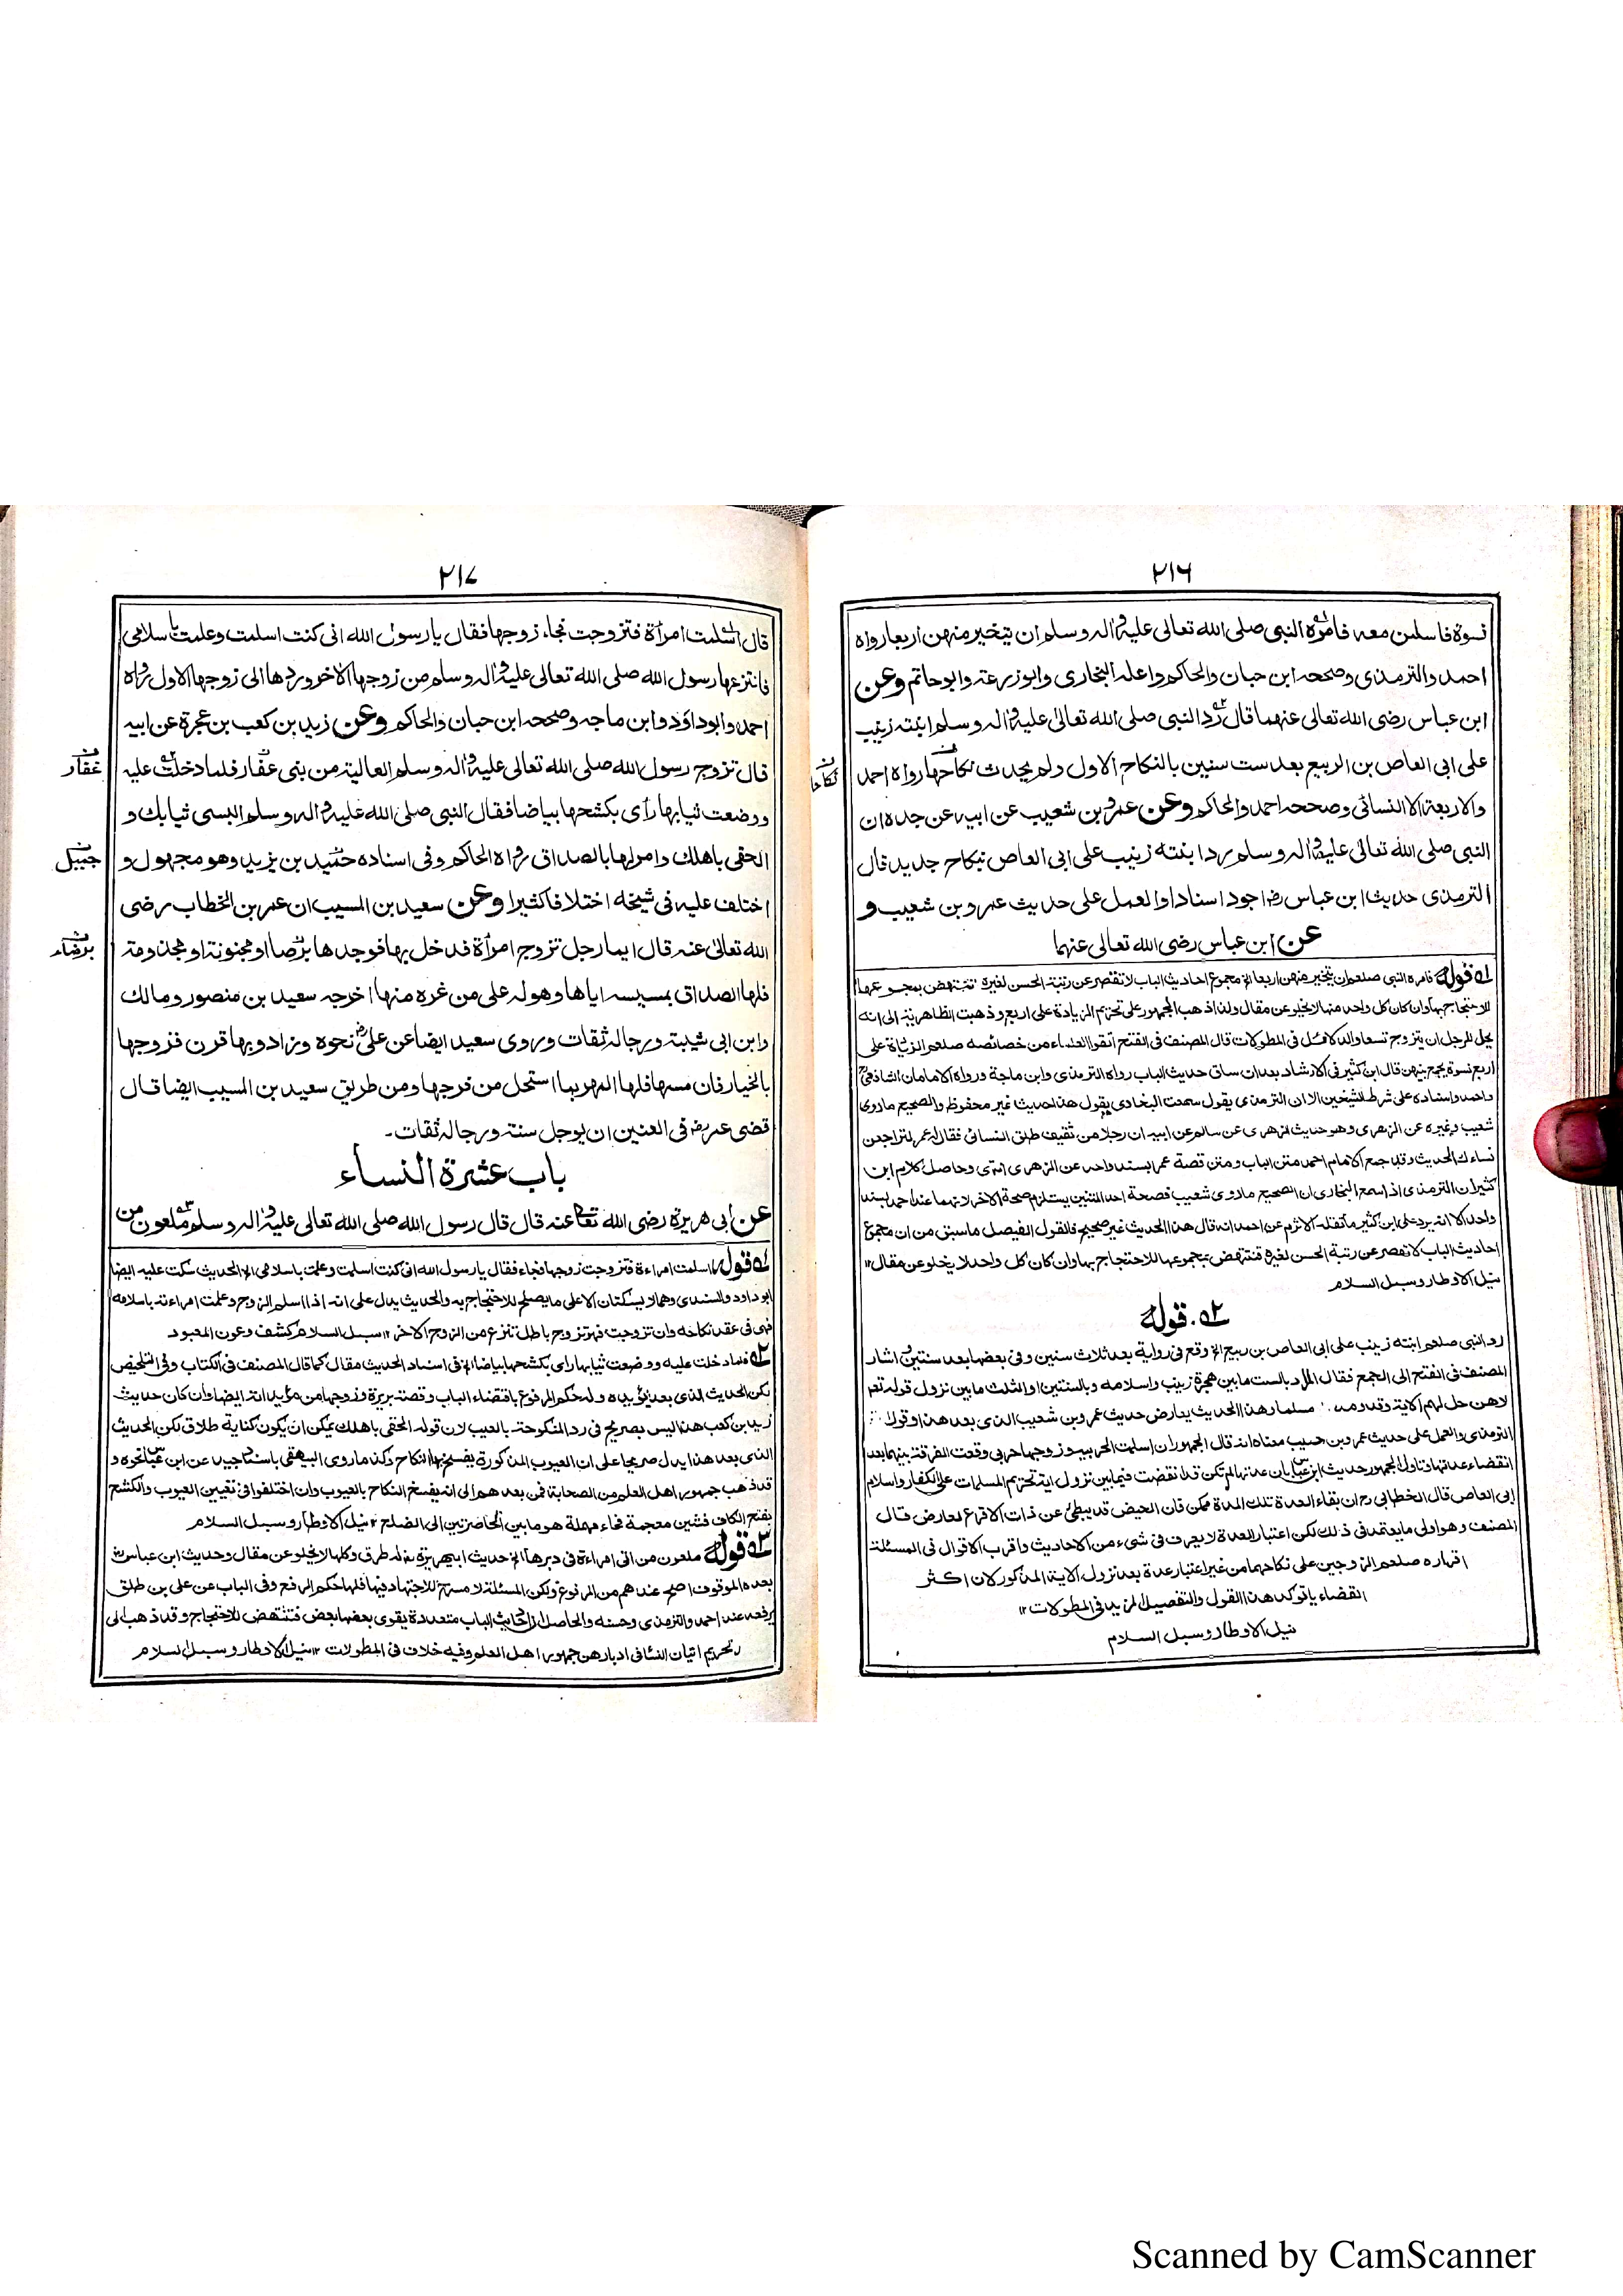 ٢١٦
نسوة فاسلمن معه فامره النبي صلى الله تعالى عليه واله وسلم ان يتخير منهن اربعا رواه
احمد والترمذى وصححه ابن حبان والحاكم واعله البخارى وابوزرعة وابوحاتم وعن
ابن عباس رضى الله تعالى عنهما قال رد النبى صلى الله تعالى عليه واله وسلم ابنته زينب
على ابى العاص بن الربيع بعد ست سنين بالنكاح الاول ولم يحدث نكاحها رواه احمد
نكاحا
والاربعة الا النسائى وصححه احمد والحاكم وعن عمرو بن شعيب عن ابيه عن جده ان
النبى صلى الله تعالى عليه واله وسلم رد ابنته زينب على ابى العاص بنكاح جديد قال
الترمذى حديث ابن عباس رض اجود اسنادا والعمل على حديث عمرو بن شعيب و
عن ابن عباس رضى الله تعالى عنهما
١ه قوله فامره النبى صلعم ان يتخير منهن اربعا الخ مجموع احاديث الباب لا تقصر عن رتبة الحسن لغيره فتنتهض بمجموعها
للاحتجاج بها وان كان كل واحد منها لا يخلو عن مقال ولذا ذهب الجمهور على تحريم الزيادة على اربع وذهبت الظاهرية الى انه
يحل للرجل ان يتزوج تسعا والدلائل فى المطولات قال المصنف فى الفتح اتفق العلماء من خصائصه صلعم الزيادة على
اربع نسوة يجمع بينهن قال ابن كثير فى الارشاد بعد ان ساق حديث الباب رواه الترمذى وابن ماجة ورواه الامامان الشافعى
واحمد واسناده على شرط الشيخين الا ان الترمذى يقول سمعت البخارى يقول هذا حديث غير محفوظ والصحيح ماروى
شعيب وغيره عن الزهرى وهو حديث الزهرى عن سالم عن ابيه ان رجلا من ثقيف طلق النسائه فقال له عمر لتراجعن
نساءك الحديث وقد جمع الامام احمد متن الباب ومتن قصة عمر بسند واحد عن الزهرى انتهى وحاصل كلام ابن
كثير ان الترمذى اذا سمع البخارى ان الصحيح ماروى شعيب فصحة احد المتنين يستلزم صحة الاخر لانهما عند احمد بسند
واحد الا انه يرد على ابن كثير ما نقله الاثرم عن احمد انه قال هذا الحديث غير صحيح فالقول الفيصل ماسبق من ان مجموع
احاديث الباب لا تقصر عن رتبة الحسن لغيره فتنتهض بمجموعها للاحتجاج بها وان كان كل واحد لا يخلو عن مقال١٢
نيل الاوطار وسبل السلام
٢ه قوله
رد النبى صلعم ابنته زينب على ابى العاص بن ربيع الخ وقع فى رواية بعد ثلاث سنين وفى بعضها بعد سنتين اشار
المصنف فى الفتح الى الجمع فقال المراد بالست مابين هجرة زينب واسلامه وبالسنتين او الثلث مابين نزول قوله تعم
لاهن حل لهم الاية وقدومه مسلما وهذا الحديث يعارض حديث عمرو بن شعيب الذى بعد هذا وقول
الترمذى والعمل على حديث عمرو بن حسيب معناه انه قال الجمهور ان اسلمت الحربية وزوجها حربى وقعت الفرقة بينهما بعد
انقضاء عدتها وتاول الجمهور حديث ابن عباس بان عدتها لم تكن قد انقضت فيما بين نزول اية تحريم المسلمات على الكفار واسلام
ابى العاص قال الخطابى رح ان بقاء العدة تلك المدة ممكن فان الحيض قد يبطئ عن ذات الاقراء لعارض قال
المصنف وهو اولى ما يعتمد فى ذلك لكن اعتبار العدة لا يعرف فى شىء من الاحاديث واقرب الاقوال فى المسئلة
اقراره صلعم الزوجين على نكاحهما من غير اعتبار عدة بعد نزول الاية المذكور لان اكثر
القضاء يا توكد هذا القول والتفصيل المزيد فى المطولات١٢
نيل الاوطار وسبل السلام
٢١٧
قال اسلمت امرأة فتزوجت فجاء زوجها فقال يا رسول الله انى كنت اسلمت وعلمت باسلامى
فانتزعها رسول الله صلى الله تعالى عليه واله وسلم من زوجها الاخر وردها الى زوجها الاول رواه
احمد وابوداؤد وابن ماجه وصححه ابن حبان والحاكم وعن زيد بن كعب بن عجرة عن ابيه
قال تزوج رسول الله صلى الله تعالى عليه واله وسلم العالية من بنى عفار فلما دخلت عليه
غفار
ووضعت ثيابها رأى بكشحها بياضا فقال النبى صلى الله عليه واله وسلم البسى ثيابك و
الحقى باهلك وامر لها بالصداق رواه الحاكم وفى اسناده حميد بن يزيد وهو مجهول و
جميل
اختلف عليه فى شيخه اختلافا كثيرا وعن سعيد بن المسيب ان عمر بن الخطاب رضى
الله تعالى عنه قال ايما رجل تزوج امرأة فدخل بها فوجدها برصا او مجنونة او مجذومة
برصاء
فلها الصداق بمسيسه اياها وهو له على من غره منها اخرجه سعيد بن منصور ومالك
وابن ابى شيبة ورجاله ثقات وروى سعيد ايضا عن على رض نحوه وزاد وبها قرن فزوجها
بالخيار فان مسها فلها المهر بما استحل من فرجها ومن طريق سعيد بن المسيب ايضا قال
قضى عمر رض فى العنين ان يوجل سنة ورجاله ثقات۔
باب عشرة النساء
عن ابى هريرة رضى الله تعالى عنه قال قال رسول الله صلى الله تعالى عليه واله وسلم ملعون من
١ه قوله اسلمت امراءة فتزوجت زوجها فجاء فقال يا رسول الله انى كنت اسلمت وعلمت باسلامى الخ الحديث سكت عليه ايضا
ابوداود والمنذرى وهما لا يسكتان الا على مايصلح للاحتجاج به والحديث يدل على انه اذا اسلم الزوج وعلمت امراءته باسلامه
فهى فى عقد نكاحه وان تزوجت فهو تزوج باطل تنتزع من الزوج الاخر١٢ سبل السلام كشف وعون المعبود
٢ه فلما دخلت عليه ووضعت ثيابها راى بكشحها بياضا الخ فى اسناد الحديث مقال كما قال المصنف فى الكتاب وفى التلخيص
لكن الحديث الذى بعد يؤيده وله حكم المرفوع باقتضاء الباب وقصة بريرة وزوجها من مؤيداته ايضا وان كان حديث
زيد بن كعب هذا ليس بصريح فى رد المنكوحة بالعيب لان قوله الحقى باهلك يمكن ان يكون كناية طلاق لكن الحديث
الذى بعد هذا يدل صريحا على ان العيوب المذكورة يفسخ بها النكاح وكذا ماروى البيهقى باسناد جيد عن ابن عباس نحوه و
قد ذهب جمهور اهل العلم من الصحابة فمن بعدهم الى انه يفسخ النكاح بالعيوب وان اختلفوا فى تعيين العيوب والكشح
بفتح الكاف فشين معجمة فحاء مهملة هو مابين الخاصرتين الى الضلع١٢ نيل الاوطار وسبل السلام
٣ه قوله ملعون من اتى امراءة فى دبرها الخ حديث ابيهريرة رض له طرق وكلها لا يخلو عن مقال وحديث ابن عباس
بعده الموقوف اصح عندهم من المرفوع ولكن المسئلة لا مسرح للاجتهاد فيها فلها حكم الرفع وفى الباب عن على بن طلق
يرفعه عند احمد والترمذى وحسنه والحاصل ان احاديث الباب متعددة يقوى بعضها بعض فتنتهض للاحتجاج وقد ذهب الى
تحريم اتيان النساء فى ادبارهن جمهور اهل العلم وفيه خلاف فى المطولات١٢ نيل الاوطار وسبل السلام
Scanned by CamScanner